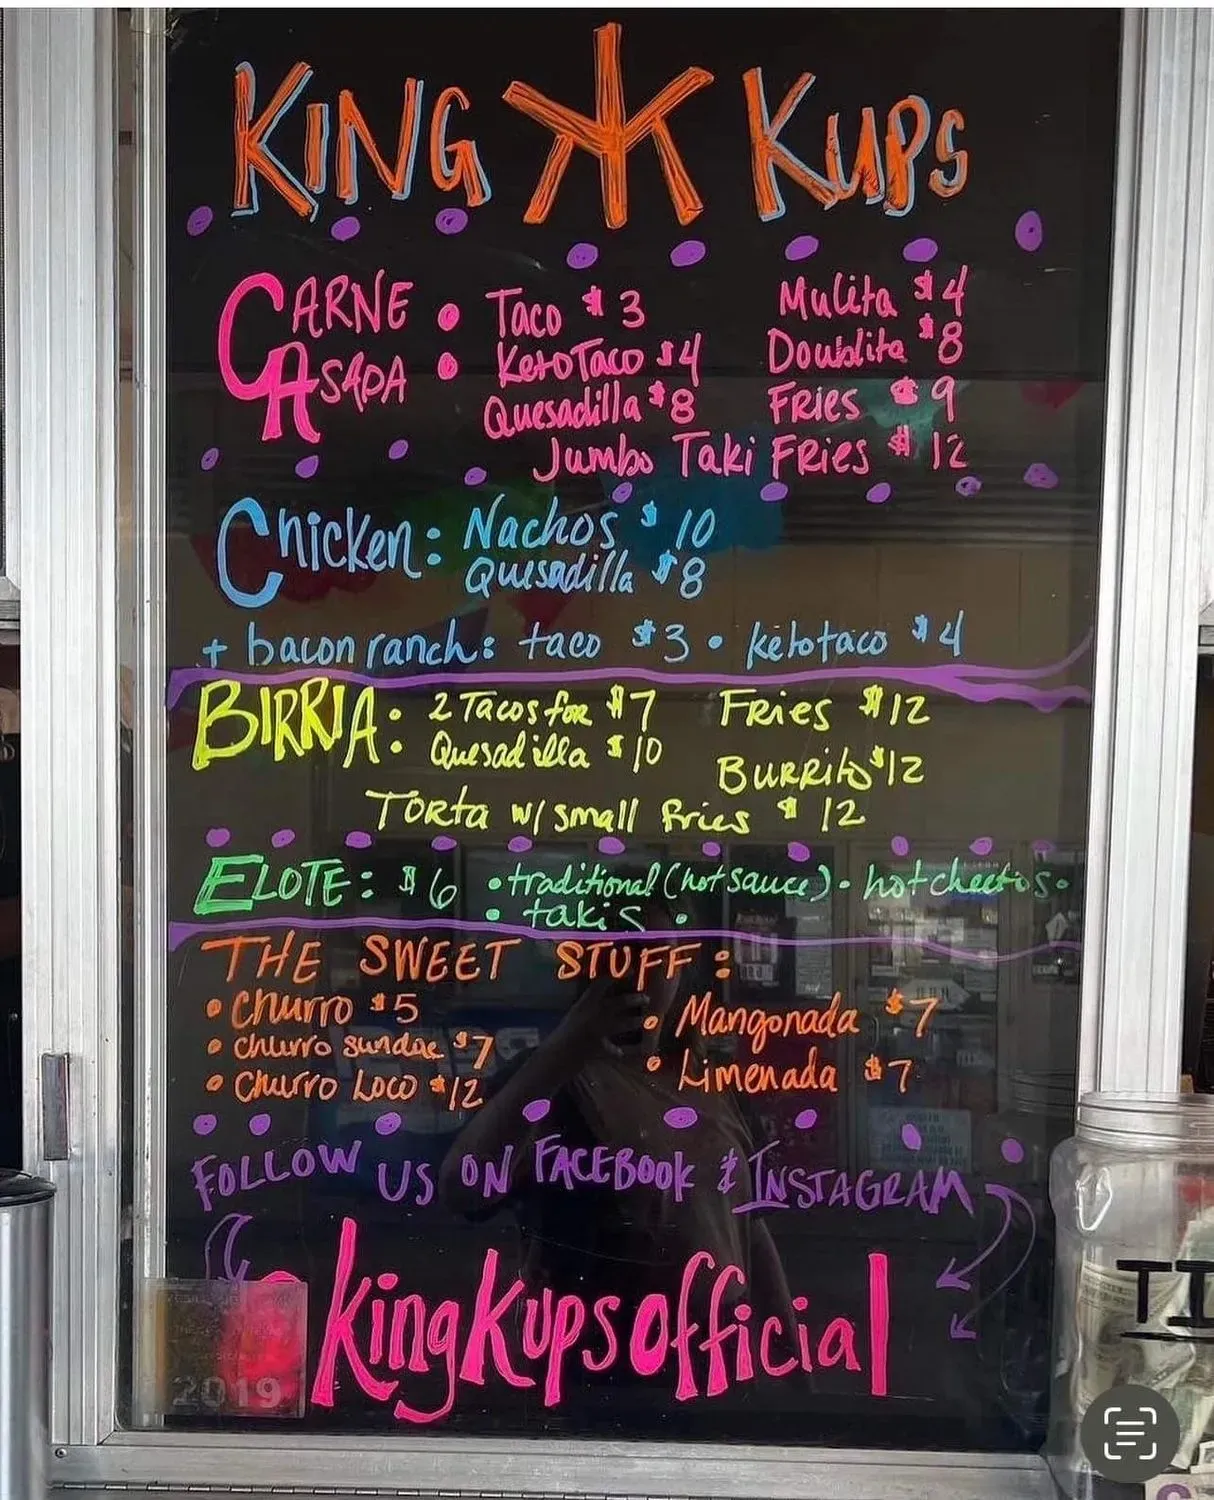 KING KUPS
CARNE ASADA
• Taco $3
• Keto Taco $4
Quesadilla $8
Mulita $4
Doublita $8
Fries $9
Jumbo Taki Fries $12
Chicken: Nachos $10
Quesadilla $8
+ bacon ranch: taco $3 • ketotaco $4
BIRRIA: 2 Tacos for $7
Quesadilla $10
Fries $12
Burrito $12
Torta w/ small fries $12
ELOTE: $6 • traditional (hot sauce) • hot cheetos •
• takis •
THE SWEET STUFF:
• Churro $5
• churro sundae $7
• Churro Loco $12
• Mangonada $7
• Limenada $7
FOLLOW US ON FACEBOOK & INSTAGRAM
kingkupsofficial
2019